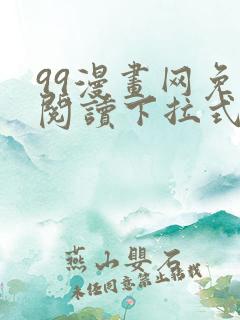 99漫畫网免
閱讀下拉式
燕山嬰石
未任同意禁止轉載